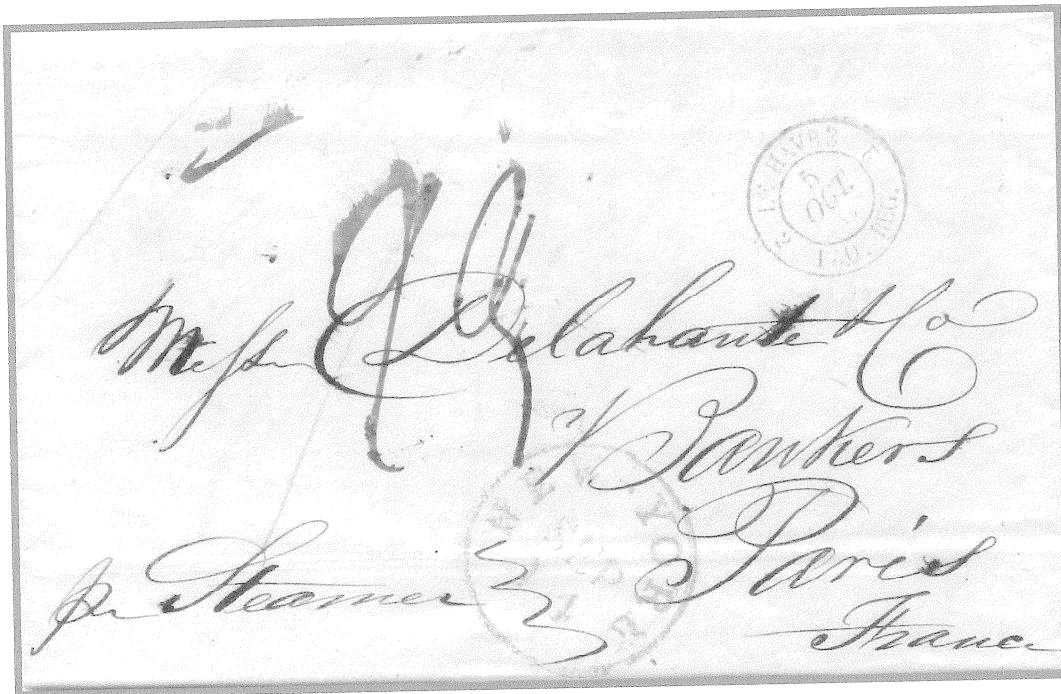 LE HAVRE
5
OCT
Mess Delahante & Co
Bankers
Paris
France
pr Steamer
NEW YORK